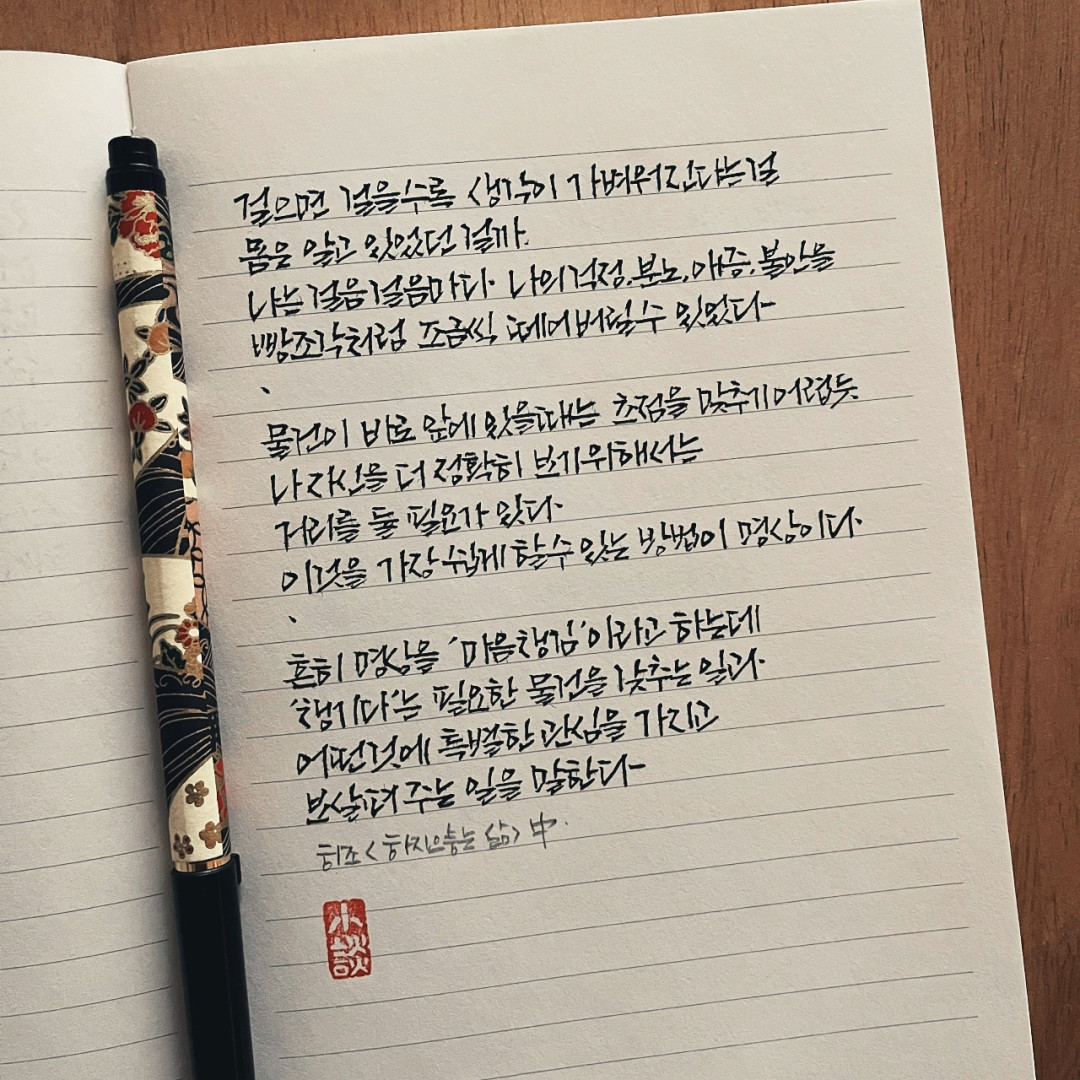 걸으면 걸을수록 생각이 가벼워진다는걸
몸은 알고 있었던 걸까.
나는 걸음걸음마다. 나의걱정,분노,애증,불안을
빵조각처럼 조금씩 떼어버릴수 있었다-
.
물건이 바로 앞에 있을때는 초점을 맞추기어렵듯
나 자신을 더 정확히 보기위해서는
거리를 둘 필요가 있다.
이것을 가장 쉽게 할수있는 방법이 명상이다.
.
흔히 명상을 '마음챙김'이라고 하는데
'챙기다'는 필요한 물건을 갖추는 일과.
어떤것에 특별한 관심을 가지고
보살펴 주는 일을 말한다-
희조<하지않는 삶>中.
小談